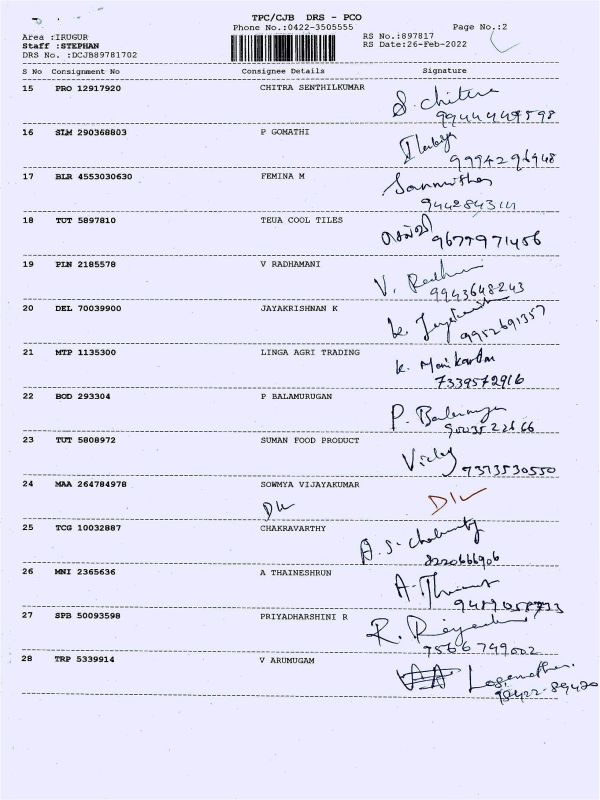 TPC/CJB DRS - PCO
Phone No.:0422-3505555 Page No.:2
Area :IRUGUR RS No.:897817
Staff :STEPHAN RS Date:26-Feb-2022
DRS No. :DCJB89781702
S No Consignment No Consignee Details Signature
15 PRO 12917920 CHITRA SENTHILKUMAR S. Chitra
16 SLM 290368803 P GOMATHI
9994296948
17 BLR 4553030630 FEMINA M
18 TUT 5897810 TEUA COOL TILES
9677971456
19 PLN 2185578 V RADHAMANI V.
9943648243
20 DEL 70039900 JAYAKRISHNAN K K.
9952691357
21 MTP 1135300 LINGA AGRI TRADING K. Manikandan
7339572916
22 BOD 293304 P BALAMURUGAN P.
23 TUT 5808972 SUMAN FOOD PRODUCT Vicky
7373530550
24 MAA 264784978 SOWMYA VIJAYKUMAR
25 TCG 10032887 CHAKRAVARTHY
8220666906
26 MNI 2365636 A THAINESHRUN
27 SPB 50093598 PRIYADHARSHINI R R.
7566749002
28 TRP 5339914 V ARUMUGAM
98422-89420